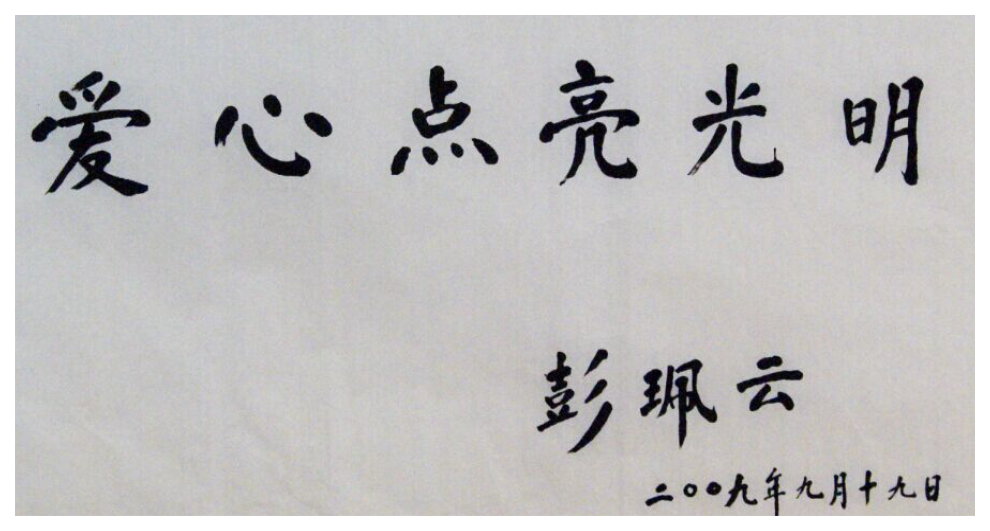 爱心点亮光明
彭珮云
二〇〇九年九月十九日